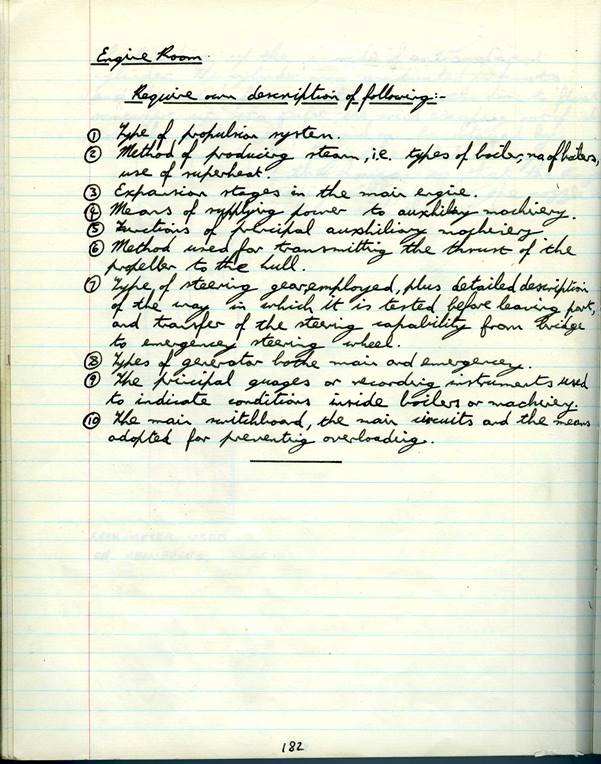 Engine Room.
Require own description of following:-
① Type of propulsion system.
② Method of producing steam, i.e. types of boiler, no of boilers,
use of superheat.
③ Expansion stages in the main engine.
④ Means of supplying power to auxhiliary machinery.
⑤ Functions of principal auxhiliary machinery
⑥ Method used for transmitting the thrust of the
propeller to the hull.
⑦ Type of steering gear employed, plus detailed description
of the way in which it is tested before leaving port,
and transfer of the steering capability from bridge
to emergency steering wheel.
⑧ Types of generator bothe main and emergency.
⑨ The principal guages or recording instruments used
to indicate conditions inside boilers or machinery.
⑩ The main switchboard, the main circuits and the means
adopted for preventing overloading.
182